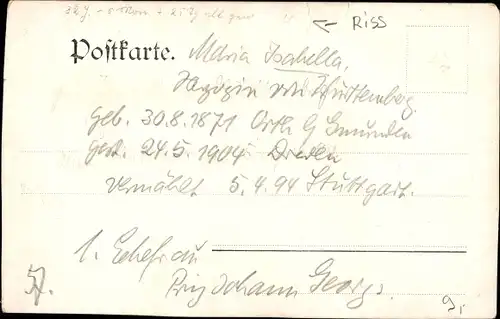 ← RISS
Postkarte. Maria Isabella,
Herzogin von Württemberg
geb. 30.8.1871 Orth Gmunden
gest. 24.5.1904 Dresden
vermählt 5.4.94 Stuttgart.
1. Ehefrau
Prinz Johann Georgs.
9,